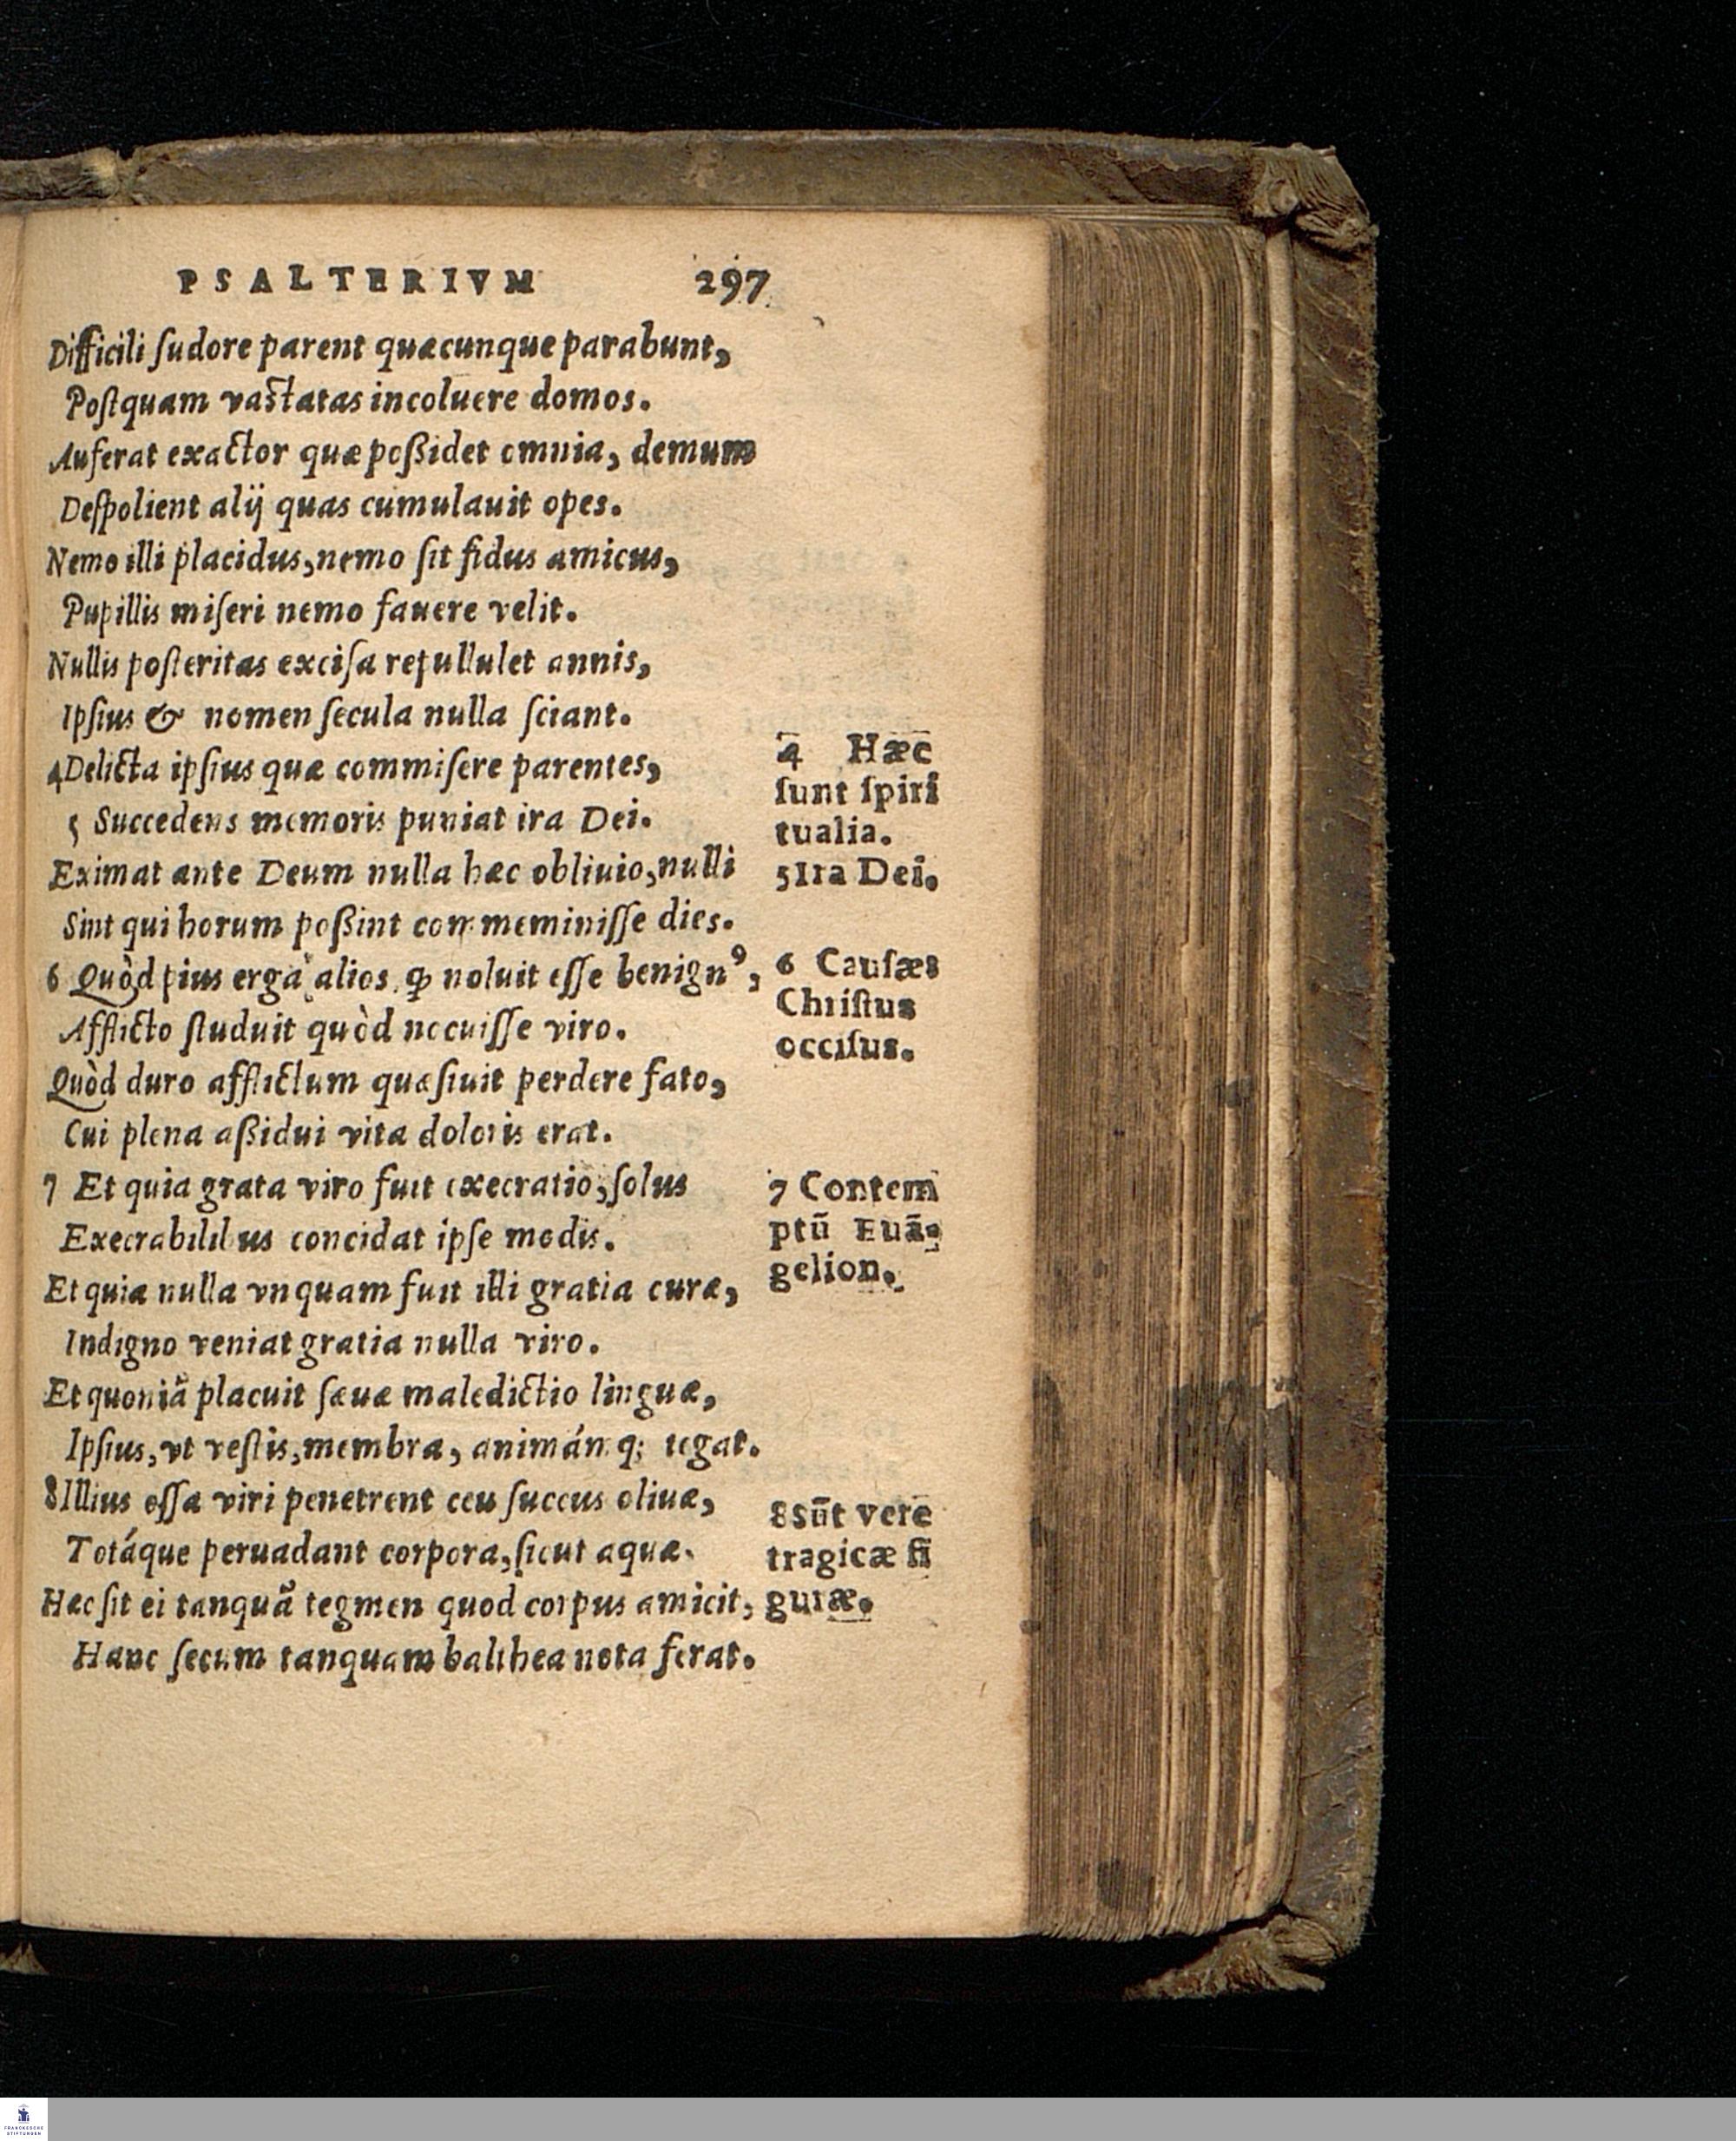 PSALTERIVM 297
Difficili ſudore parent quæcunque parabunt,
Poſtquam vaſtatas incoluere domos.
Auferat exactor quæ poßidet omnia, demum
Deſpolient alij quas cumulauit opes.
Nemo illi placidus, nemo ſit fidus amicus,
Pupillis miſeri nemo fauere velit.
Nullis poſteritas exciſa repullulet annis,
Ipſius & nomen ſecula nulla ſciant.
4 Delicta ipſius quæ commiſere parentes,
5 Succedens memoris puniat ira Dei.
Eximat ante Deum nulla hæc obliuio, nulli
Sint qui horum poßint commeminiſſe dies.
6 Quòd pius erga alios ꝙ noluit eſſe benignꝰ,
Afflicto ſtuduit quòd nocuiſſe viro.
Quòd duro afflictum quæſiuit perdere fato,
Cui plena aßidui vita doloris erat.
7 Et quia grata viro fuit execratio, ſolus
Execrabilibus concidat ipſe modis.
Et quia nulla vnquam fuit illi gratia curæ,
Indigno veniat gratia nulla viro.
Et quoniã placuit ſæuæ maledictio linguæ,
Ipſius, vt veſtis, membra, animámq; tegat.
8 Illius oſſa viri penetrent ceu ſuccus oliuæ,
Totáque peruadant corpora, ſicut aquæ.
Hæc ſit ei tanquã tegmen quod corpus amicit,
Hanc ſecum tanquam balthea nota ferat.
4 Hæc
ſunt ſpiri
tualia.
5 Ira Dei.
6 Cauſæ
Chriſtus
occiſus.
7 Contem
ptũ Euã-
gelion.
8 Sũt vere
tragicæ fi
guræ.
FRANCKESCHE
STIFTUNGEN